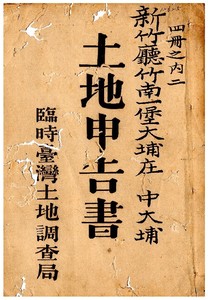 四冊之內二
新竹廳竹南一堡大埔庄 中大埔
土地申告書
臨時臺灣土地調查局